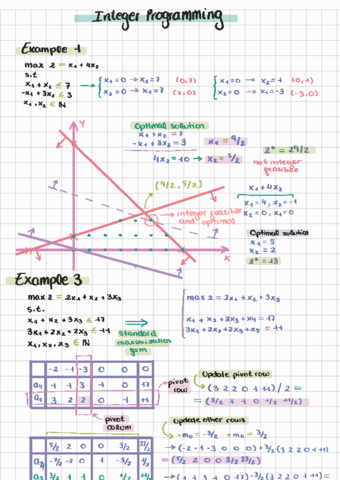 Integer Programming
Example 1
max z = x₁ + 4x₂
s.t
x₁ + x₂ ≤ 7
-x₁ + 3x₂ ≤ 3
x₁, x₂ ∈ ℕ
x₁=0 → x₂=7 (0,7)
x₂=0 → x₁=7 (7,0)
x₁=0 → x₂=1 (0,1)
x₂=0 → x₁=-3 (-3,0)
Optimal solution
x₁ + x₂ = 7
-x₁ + 3x₂ = 3
4x₂ = 10 → x₂ = 5/2
x₁ = 9/2
z* = 29/2
not integer
feasible
Y
(9/2, 5/2)
integer feasible
and optimal
X
x₁ + 4x₂
x₁=4, x₂=-1
x₂=0, x₁=0
Optimal solution
x₁ = 5
x₂ = 2
z* = 13
Example 3
max z = 2x₁ + x₂ + 3x₃
s.t.
x₁ + x₂ + 3x₃ ≤ 17
3x₁ + 2x₂ + 2x₃ ≤ 11
x₁, x₂, x₃ ∈ ℕ
standard
maximization
form
max z = 2x₁ + x₂ + 3x₃
x₁ + x₂ + 3x₃ + x₄ = 17
3x₁ + 2x₂ + 2x₃ + x₅ = 11
-2 -1 -3 0 0 0
a₁ 1 1 3 1 0 17
a₂ 3 2 2 0 1 11
pivot
row
pivot
colum
Update pivot row
(3 2 2 0 1 11)/2 =
= (3/2 1 1 0 1/2 11/2)
Update other rows
(-2 -1 -3 0 0 0) + 3/2 (3 2 2 0 1 11)
(5/2 2 0 0 3/2 33/2)
→ (1 1 3 1 0 17) - 3/2 (3 2 2 0 1 11) =
5/2 2 0 0 3/2 33/2
-7/2 -2 0 1 -3/2 1/2